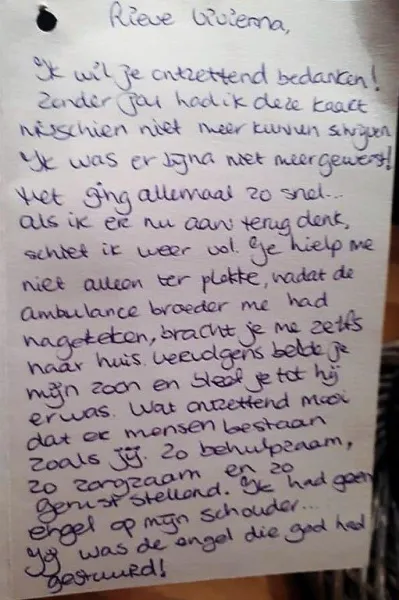 Lieve Vivienna,
Ik wil je ontzettend bedanken!
Zonder jou had ik deze kaart
misschien niet meer kunnen schrijven
Ik was er bijna niet meer geweest!
Het ging allemaal zo snel...
als ik er nu aan terug denk,
schiet ik weer vol. Je hielp me
niet alleen ter plekke, nadat de
ambulance broeder me had
nagekeken, bracht je me zelfs
naar huis. Vervolgens belde je
mijn zoon en bleef je tot hij
er was. Wat ontzettend mooi
dat er mensen bestaan
zoals jij. Zo behulpzaam,
zo zorgzaam en zo
gerust stellend. Ik had geen
engel op mijn schouder...
Jij was de engel die god had
gestuurd!